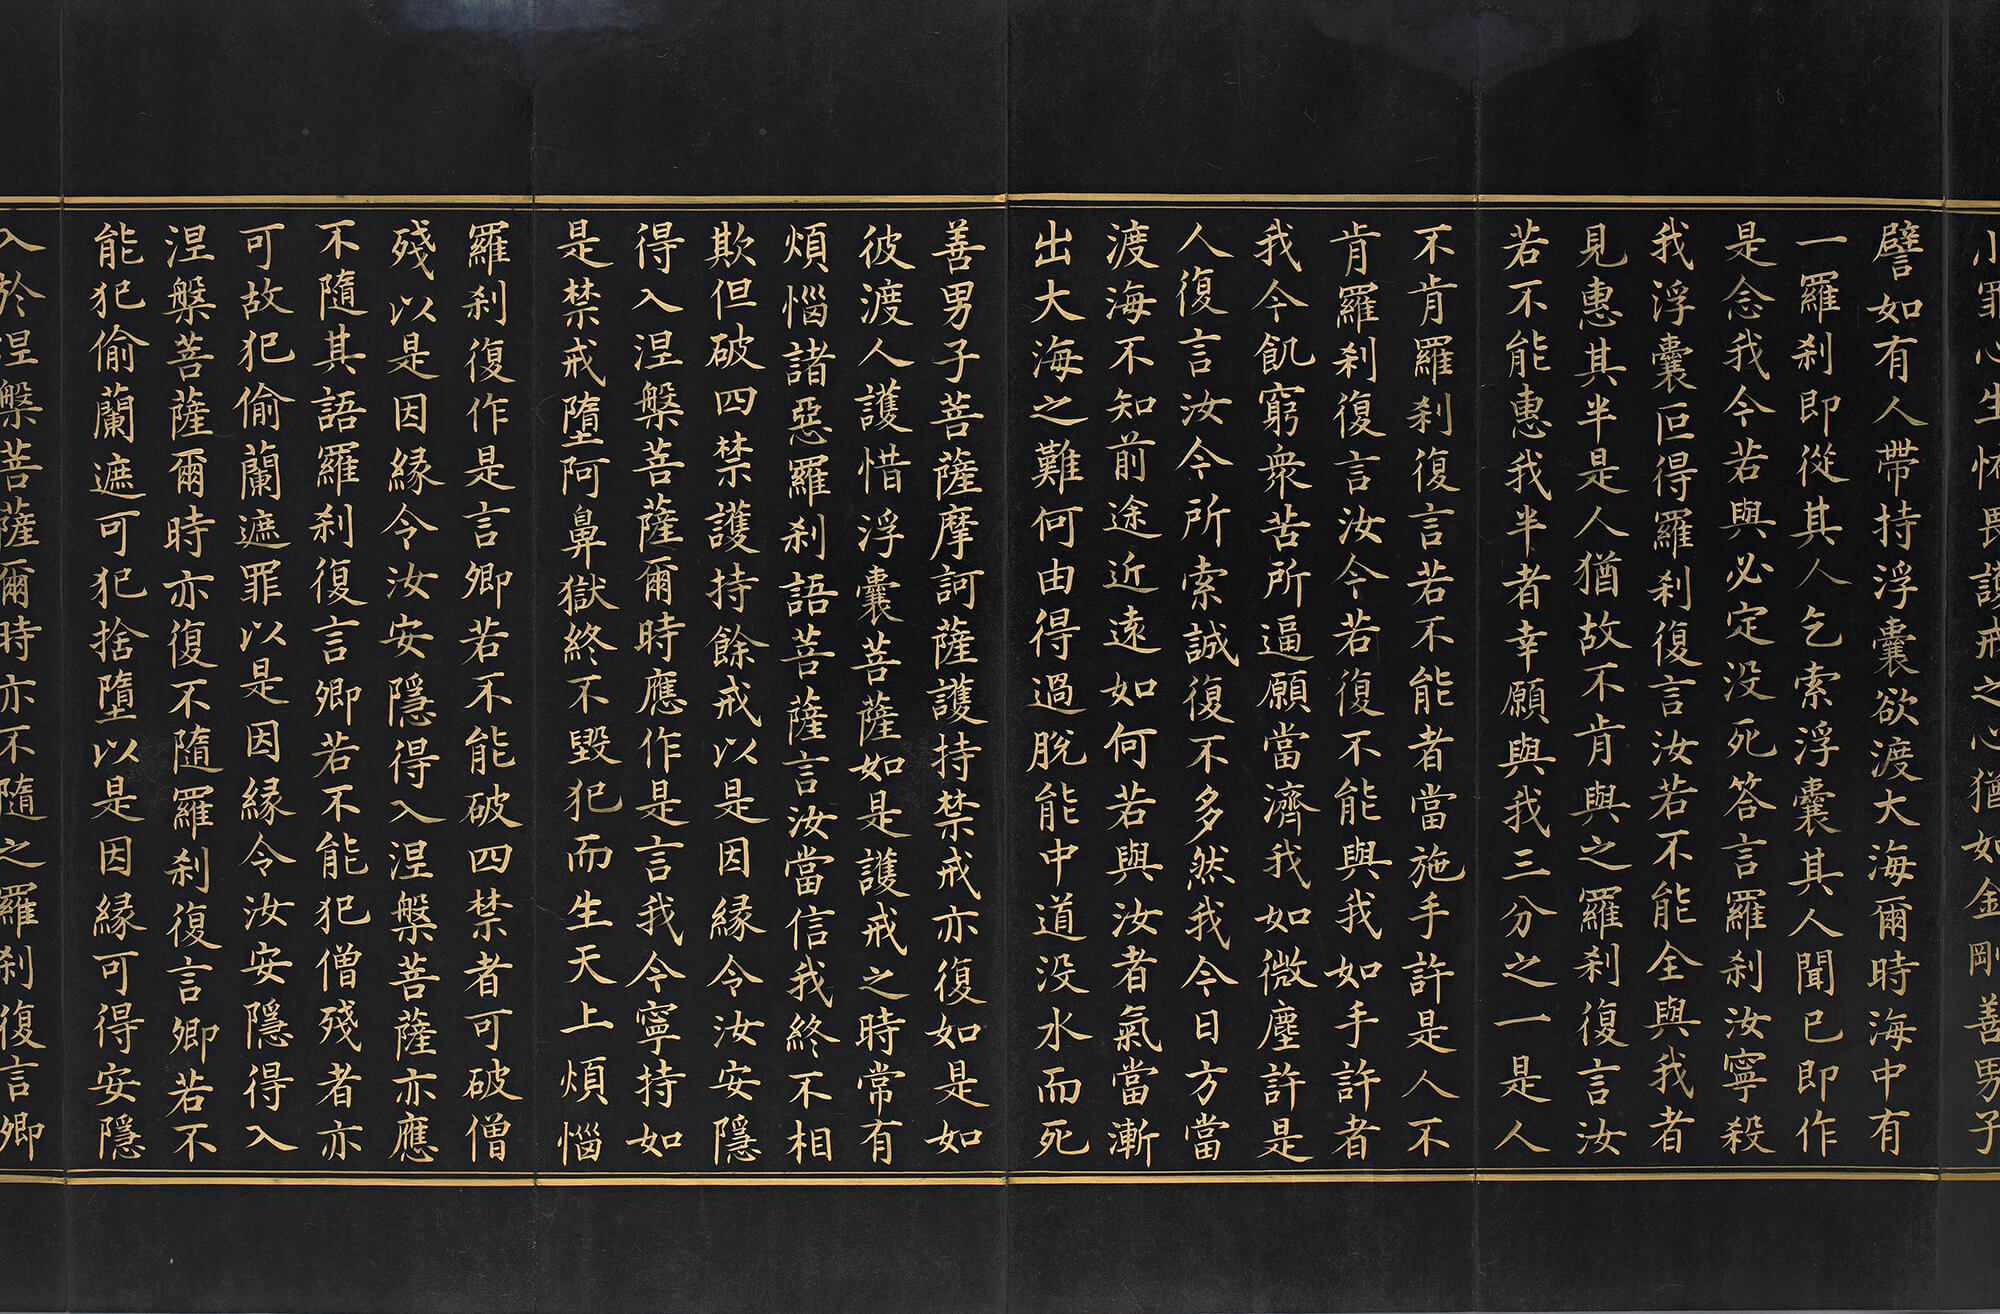 小罪心生怖畏護戒之心猶如金剛善男子
譬如有人帶持浮囊欲渡大海爾時海中有
一羅剎即從其人乞索浮囊其人聞已即作
是念我今若與必定没死答言羅剎汝寧殺
我浮囊叵得羅剎復言汝若不能全與我者
見惠其半是人猶故不肯與之羅剎復言汝
若不能惠我半者幸願與我三分之一是人
不肯羅剎復言若不能者當施手許是人不
肯羅剎復言汝今若復不能與我如手許者
我今飢窮衆苦所逼願當濟我如微塵許是
人復言汝今所索誠復不多然我今日方當
渡海不知前途近遠如何若與汝者氣當漸
出大海之難何由得過脫能中道没水而死
善男子菩薩摩訶薩護持禁戒亦復如是如
彼渡人護惜浮囊菩薩如是護戒之時常有
煩惱諸惡羅剎語菩薩言汝當信我終不相
欺但破四禁護持餘戒以是因緣令汝安隱
得入涅槃菩薩爾時應作是言我今寧持如
是禁戒墮阿鼻獄終不毀犯而生天上煩惱
羅剎復作是言卿若不能破四禁者可破僧
殘以是因緣令汝安隱得入涅槃菩薩亦應
不隨其語羅剎復言卿若不能犯僧殘者亦
可故犯偷蘭遮罪以是因緣令汝安隱得入
涅槃菩薩爾時亦復不隨羅剎復言卿若不
能犯偷蘭遮可犯捨墮以是因緣可得安隱
入於涅槃菩薩爾時亦不隨之羅剎復言卿